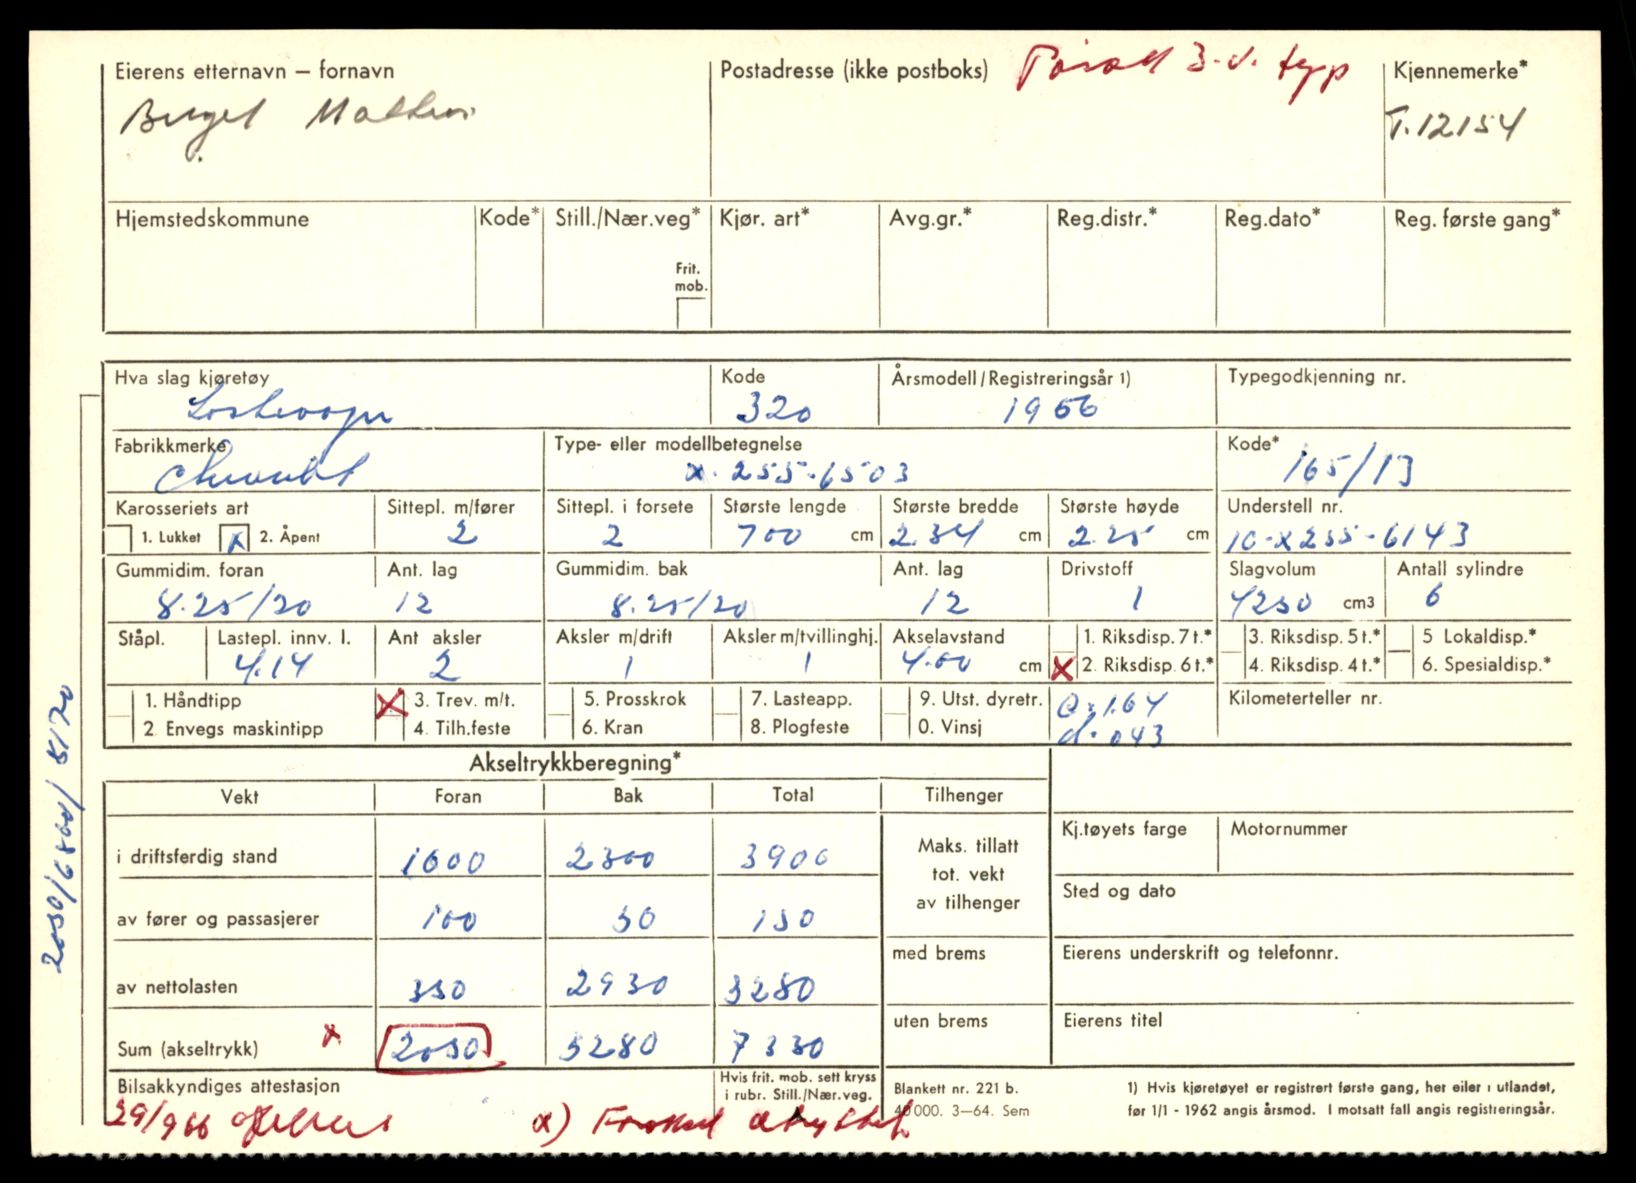 Eierens etternavn – fornavn
Postadresse (ikke postboks)
3. v. typ
Kjennemerke*
T.12154
Hjemstedskommune
Kode*
Still./Nær.veg*
Kjør. art*
Avg.gr.*
Reg.distr.*
Reg.dato*
Reg. første gang*
Frit.
mob.
Hva slag kjøretøy
Kode
Årsmodell/Registreringsår 1)
Typegodkjenning nr.
Lastevogn
320
1966
Fabrikkmerke
Type- eller modellbetegnelse
Kode*
Chevrolet
x. 255-6503
165/13
Karosseriets art
Sittepl. m/fører
Sittepl. i forsete
Største lengde
Største bredde
Største høyde
Understell nr.
1. Lukket
x
2. Åpent
2
2
700 cm
2.34 cm
2.25 cm
1C-X255-6143
Gummidim. foran
Ant. lag
Gummidim. bak
Ant. lag
Drivstoff
Slagvolum
Antall sylindre
8.25/20
12
8.25/20
12
1
4250 cm3
6
Ståpl.
Lastepl. innv. l.
Ant aksler
Aksler m/drift
Aksler m/tvillinghj.
Akselavstand
1. Riksdisp. 7 t.*
3. Riksdisp. 5 t.*
5 Lokaldisp.*
4.14
2
1
1
4.00 cm
x
2. Riksdisp. 6 t.*
4. Riksdisp. 4 t.*
6. Spesialdisp.*
1. Håndtipp
x
3. Trev. m/t.
5. Prosskrok
7. Lasteapp.
9. Utst. dyretr.
Kilometerteller nr.
2. Envegs maskintipp
4. Tilh.feste
6. Kran
8. Plogfeste
0. Vinsj
1.64
d. 043
Akseltrykkberegning*
Vekt
Foran
Bak
Total
Tilhenger
i driftsferdig stand
1600
2300
3900
Maks. tillatt
tot. vekt
av tilhenger
Kj.tøyets farge
Motornummer
av fører og passasjerer
100
50
150
Sted og dato
av nettolasten
350
2930
3280
med brems
Eierens underskrift og telefonnr.
Sum (akseltrykk)
x
2050
5280
7330
uten brems
Eierens titel
Bilsakkyndiges attestasjon
Hvis frit. mob. sett kryss
i rubr. Still./Nær.veg.
29/9 66
Blankett nr. 221 b.
40 000. 3—64. Sem
1) Hvis kjøretøyet er registrert første gang, her eller i utlandet,
før 1/1 - 1962 angis årsmod. I motsatt fall angis registreringsår.